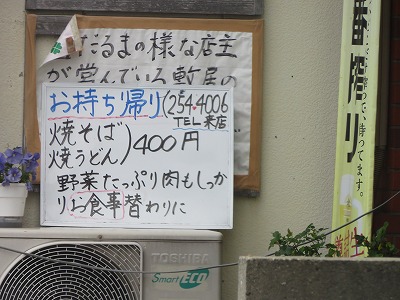 だるまの様な店主
が営んでいる
お持ち帰り(254-4006
TEL 来店
焼そば
焼うどん) 400円
野菜たっぷり肉もしっか
りお食事替わりに
番搾り
待ってます。
生
TOSHIBA
Smart ECO